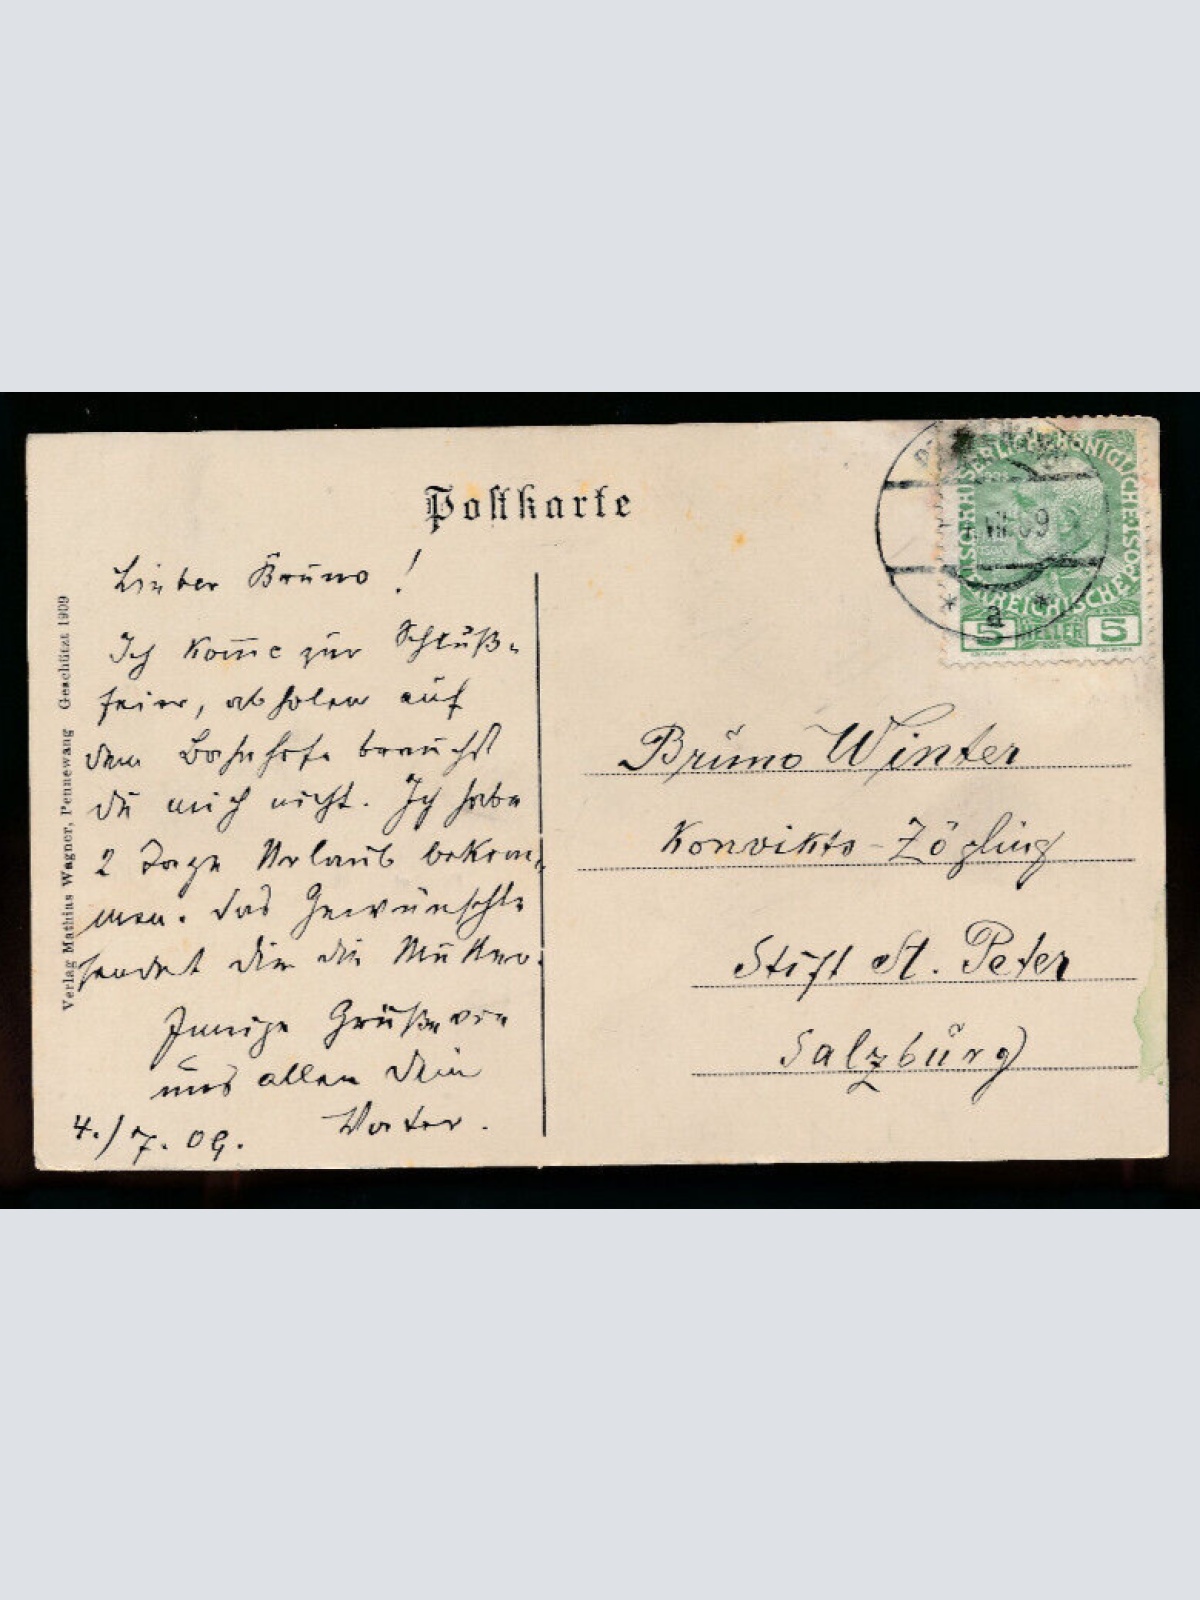 Postkarte
Lieber Bruno!
Ich kom̄e zur Schluß-
feier, abholen auf
dem Bahnhofe brauchst
du mich nicht. Ich habe
2 Tage Urlaub bekom-
men. Das Gewünschte
sendet dir die Mutter.
Innige Grüße von
uns allen Dein
Vater.
4./7.09.
Verlag Mathias Wagner, Pennewang Geschützt 1909
KAISERLICHE KÖNIGLICHE ÖSTERREICHISCHE
5 HELLER 5
VII 09
a
Bruno Winter
Konvikts-Zögling
Stift St. Peter
Salzburg